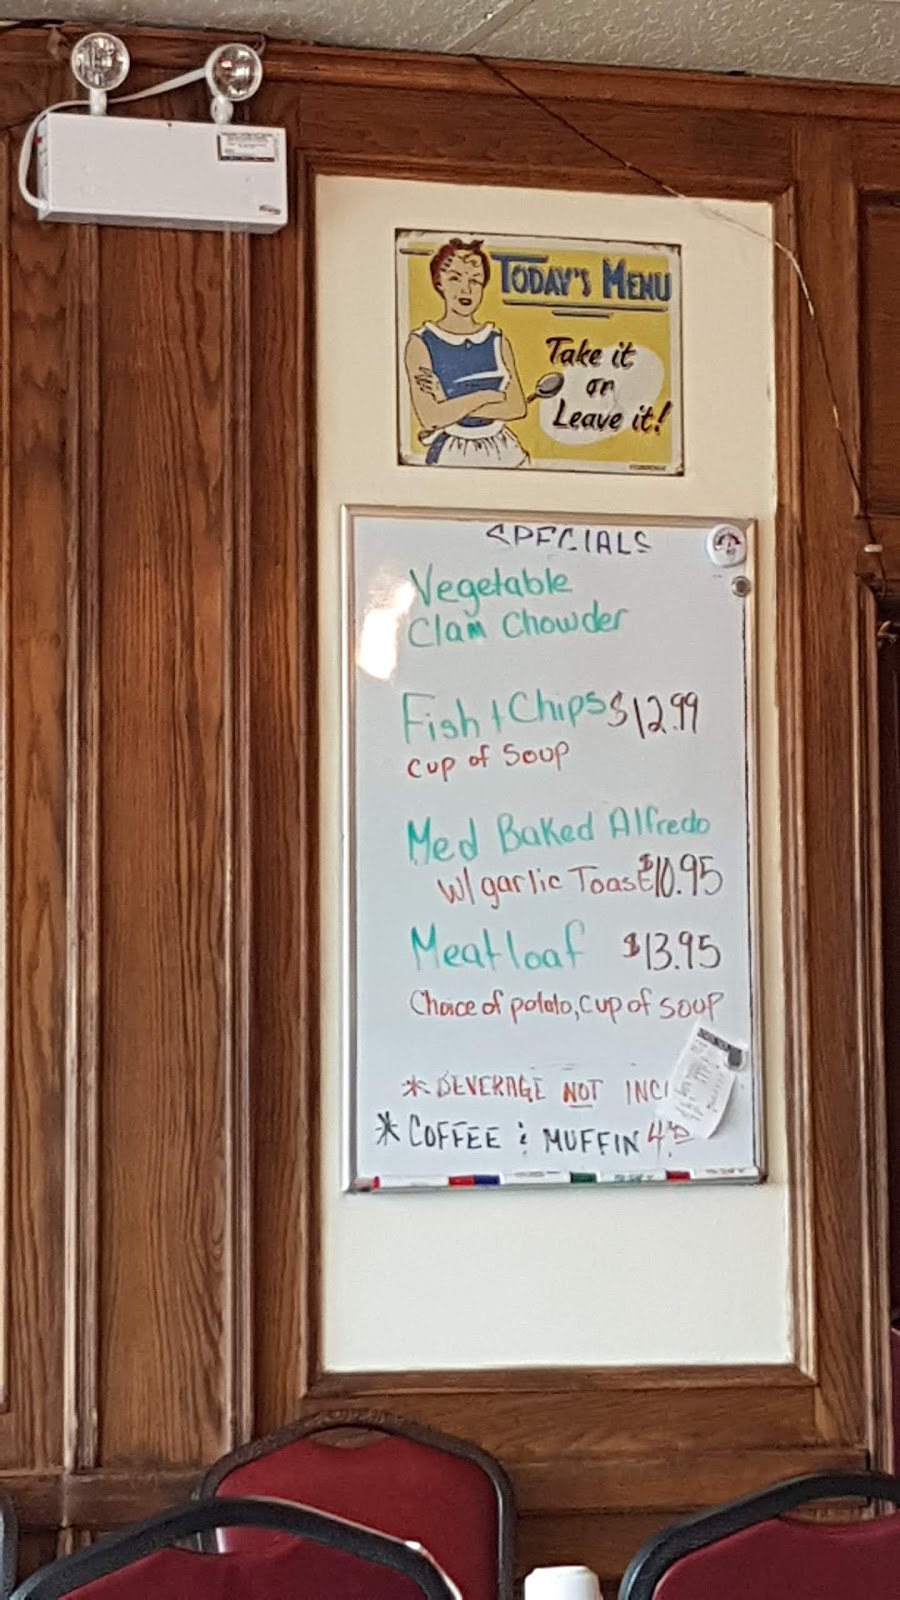 TODAY'S MENU
Take it
or
Leave it!
SPECIALS
Vegetable
Clam Chowder
Fish + Chips $12.99
Cup of Soup
Med Baked Alfredo
w/ garlic Toast $10.95
Meatloaf $13.95
Choice of potato, cup of soup
* BEVERAGE NOT INCL
* COFFEE & MUFFIN